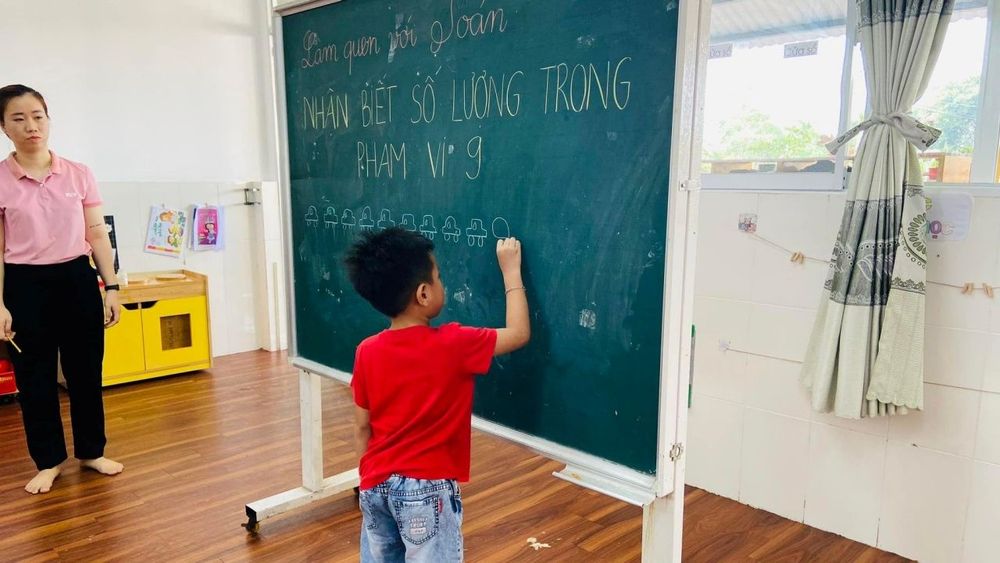 Làm quen với Toán
NHẬN BIẾT SỐ LƯỢNG TRONG
PHẠM VI 9
Cửa sổ
Cửa sổ